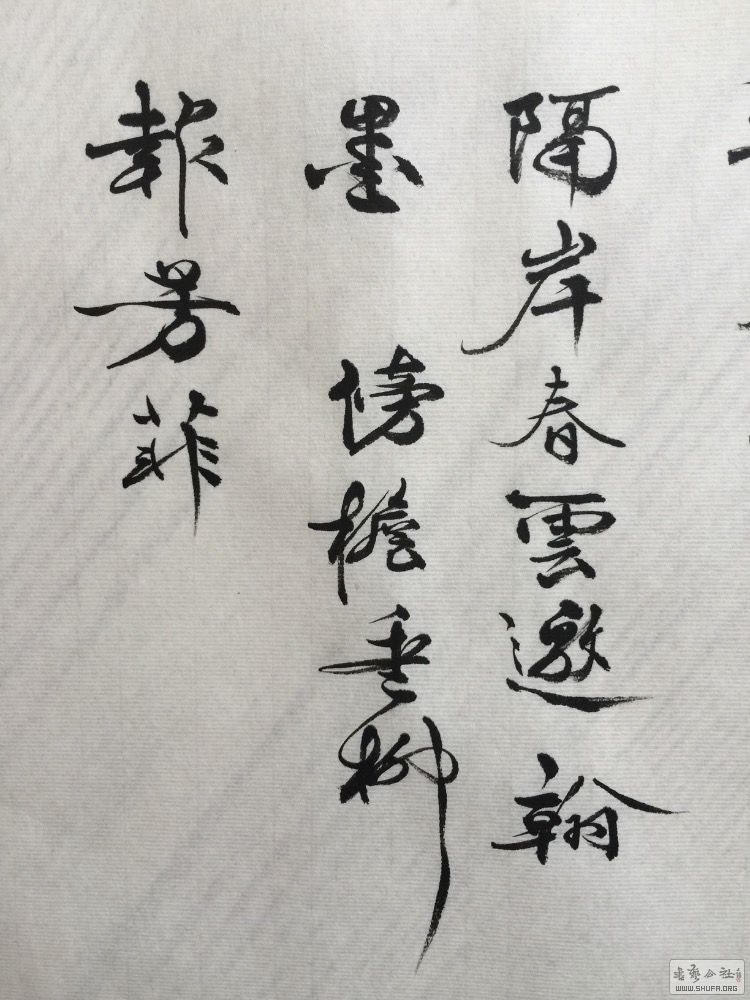 隔岸春雲邀翰
墨 傍檐垂柳
報芳菲
書藝公社
WWW.SHUFA.ORG